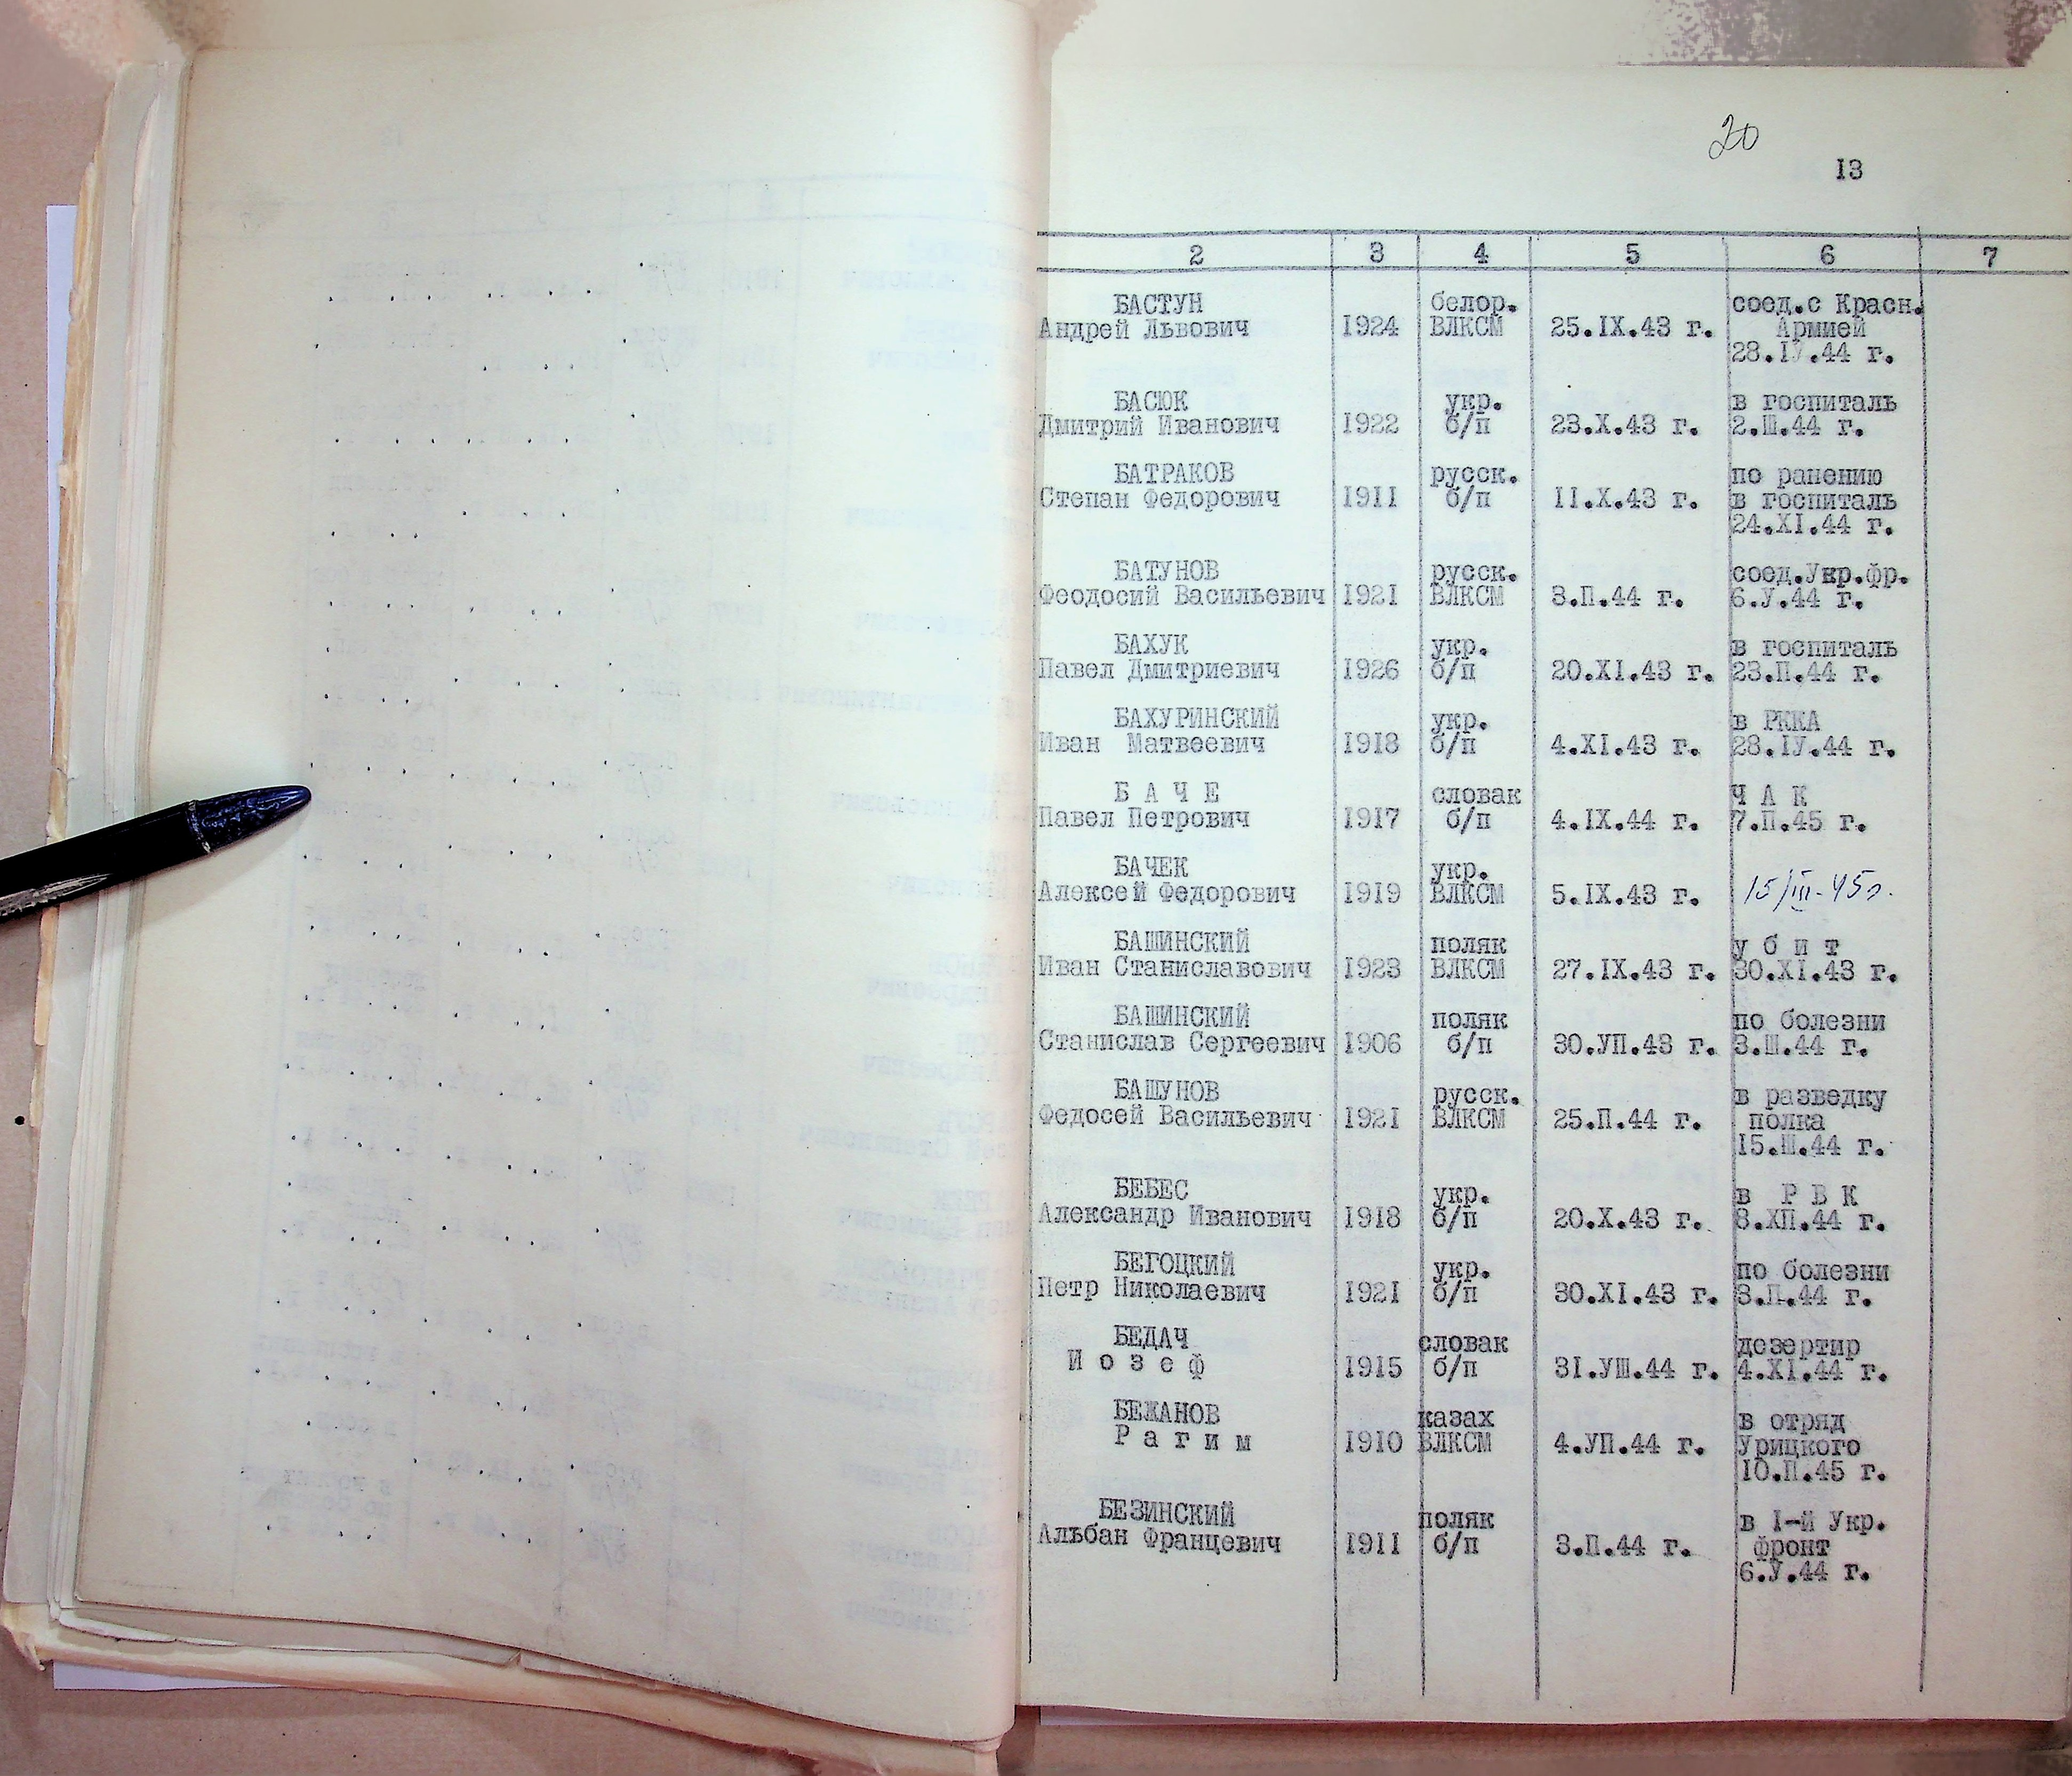 20
13
2 3 4 5 6 7
БАСТУН белор. соед.с Красн.
Андрей Львович 1924 ВЛКСМ 25.IX.43 г. Армией
28.IУ.44 г.
БАСЮК укр. в госпиталь
Дмитрий Иванович 1922 б/п 23.X.43 г. 2.Ш.44 г.
БАТРАКОВ русск. по ранению
Степан Федорович 1911 б/п II.X.43 г. в госпиталь
24.XI.44 г.
БАТУНОВ русск. соед.Укр.фр.
Феодосий Васильевич 1921 ВЛКСМ 3.П.44 г. 6.У.44 г.
БАХУК укр. в госпиталь
Павел Дмитриевич 1926 б/п 20.XI.43 г. 23.П.44 г.
БАХУРИНСКИЙ укр. в РККА
Иван Матвеевич 1918 б/п 4.XI.43 г. 28.IУ.44 г.
Б А Ч Е словак Ч А К
Павел Петрович 1917 б/п 4.IX.44 г. 7.П.45 г.
БАЧЕК укр.
Алексей Федорович 1919 ВЛКСМ 5.IX.43 г. 15/III-45г.
БАШИНСКИЙ поляк у б и т
Иван Станиславович 1923 ВЛКСМ 27.IX.43 г. 30.XI.43 г.
БАШИНСКИЙ поляк по болезни
Станислав Сергеевич 1906 б/п 30.УП.43 г. 3.Ш.44 г.
БАШУНОВ русск. в разведку
Федосей Васильевич 1921 ВЛКСМ 25.П.44 г. полка
15.Ш.44 г.
БЕБЕС укр. в Р В К
Александр Иванович 1918 б/п 20.X.43 г. 8.ХП.44 г.
БЕГОЦКИЙ укр. по болезни
Петр Николаевич 1921 б/п 30.XI.43 г. 3.П.44 г.
БЕДАЧ словак дезертир
И о з е ф 1915 б/п 31.УШ.44 г. 4.XI.44 г.
БЕЖАНОВ казах в отряд
Р а г и м 1910 ВЛКСМ 4.УП.44 г. Урицкого
10.П.45 г.
БЕЗИНСКИЙ поляк в I-й Укр.
Альбан Францевич 1911 б/п 3.П.44 г. фронт
6.У.44 г.